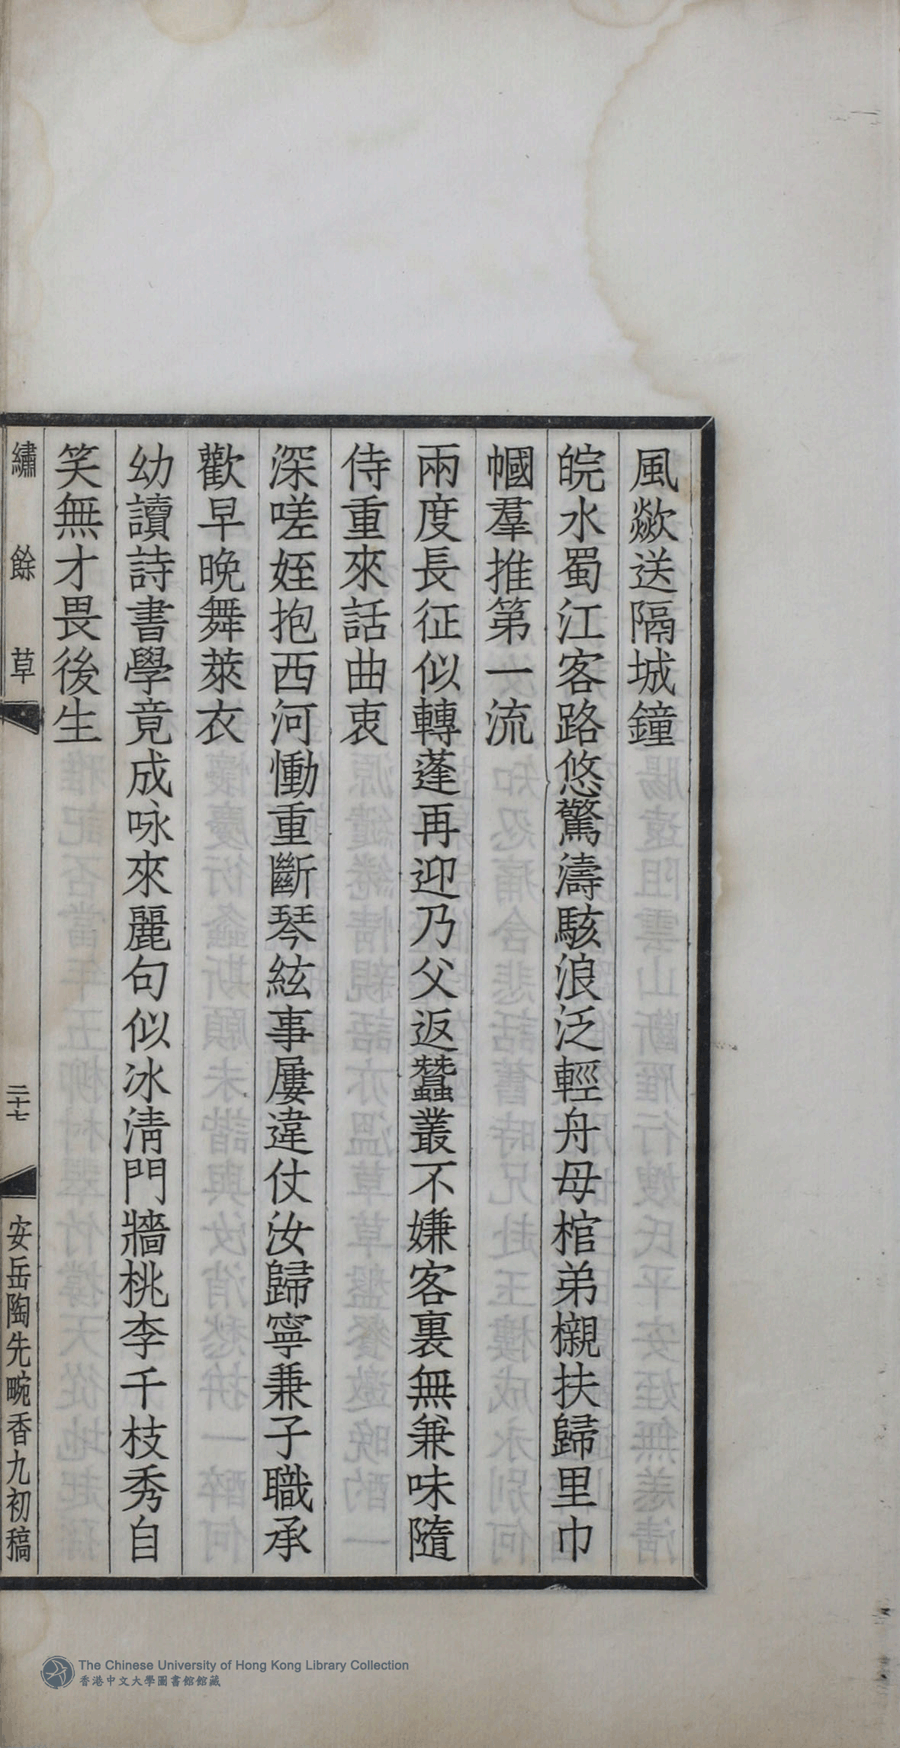 風歘送隔城鐘
皖水蜀江客路悠驚濤駭浪泛輕舟母棺弟櫬扶歸里巾
幗羣推第一流
兩度長征似轉蓬再迎乃父返蠶叢不嫌客裏無兼味隨
侍重來話曲衷
深嗟姪抱西河慟重斷琴絃事屢違仗汝歸寧兼子職承
歡早晚舞萊衣
幼讀詩書學竟成咏來麗句似冰清門牆桃李千枝秀自
笑無才畏後生
繡餘草
二十七
安岳陶先畹香九初稿
The Chinese University of Hong Kong Library Collection
香港中文大學圖書館館藏